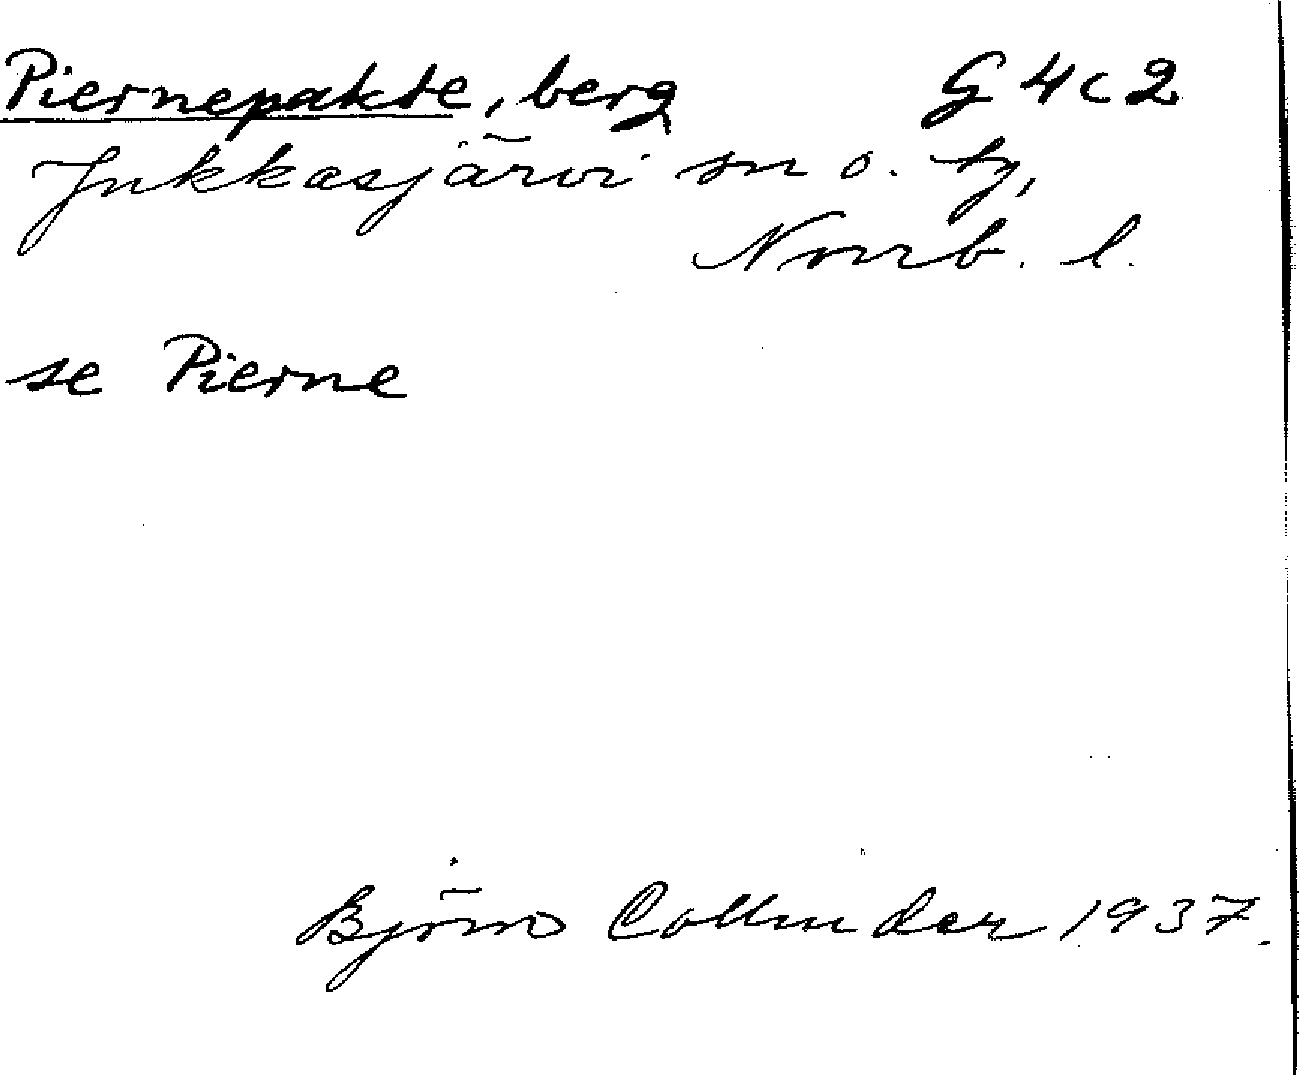 Piernepakte, berg G 4 c 2
Jukkasjärvi sn o. tg,
Norrb. l.
se Pierne
Björn Collinder 1937.